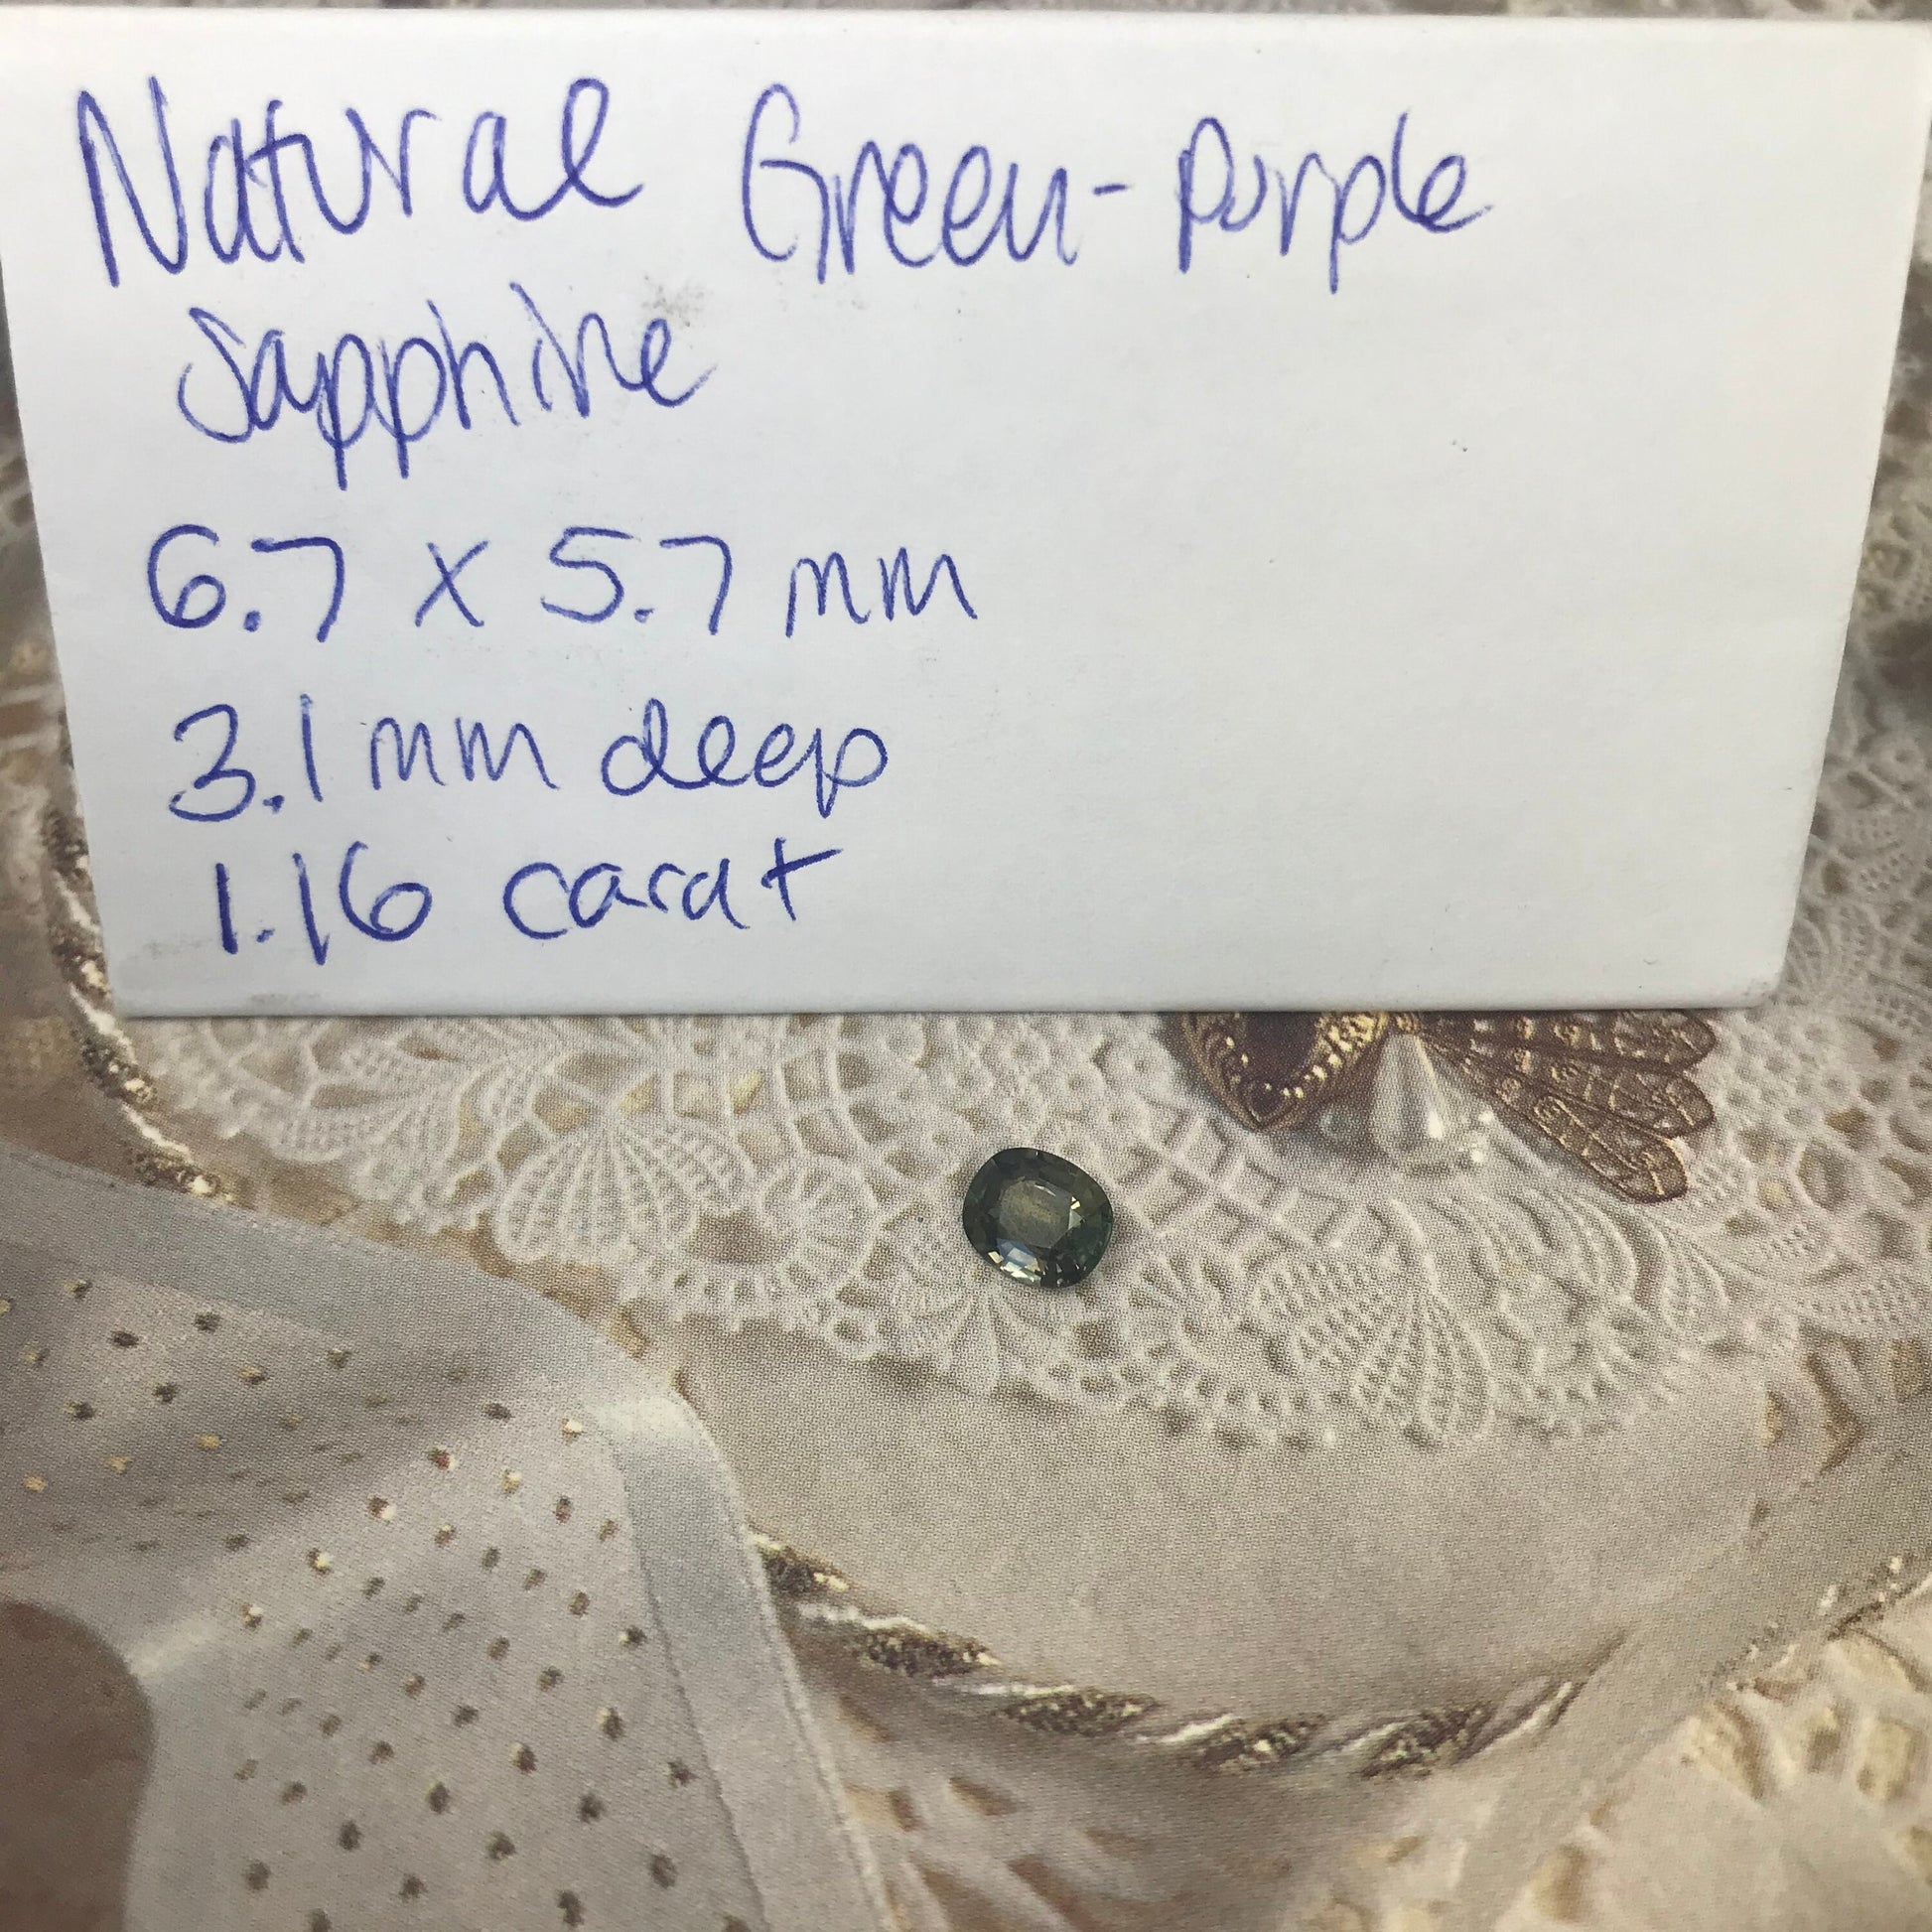 Natural Green-Purple
Sapphire
6.7 x 5.7 mm
3.1 mm deep
1.16 carat